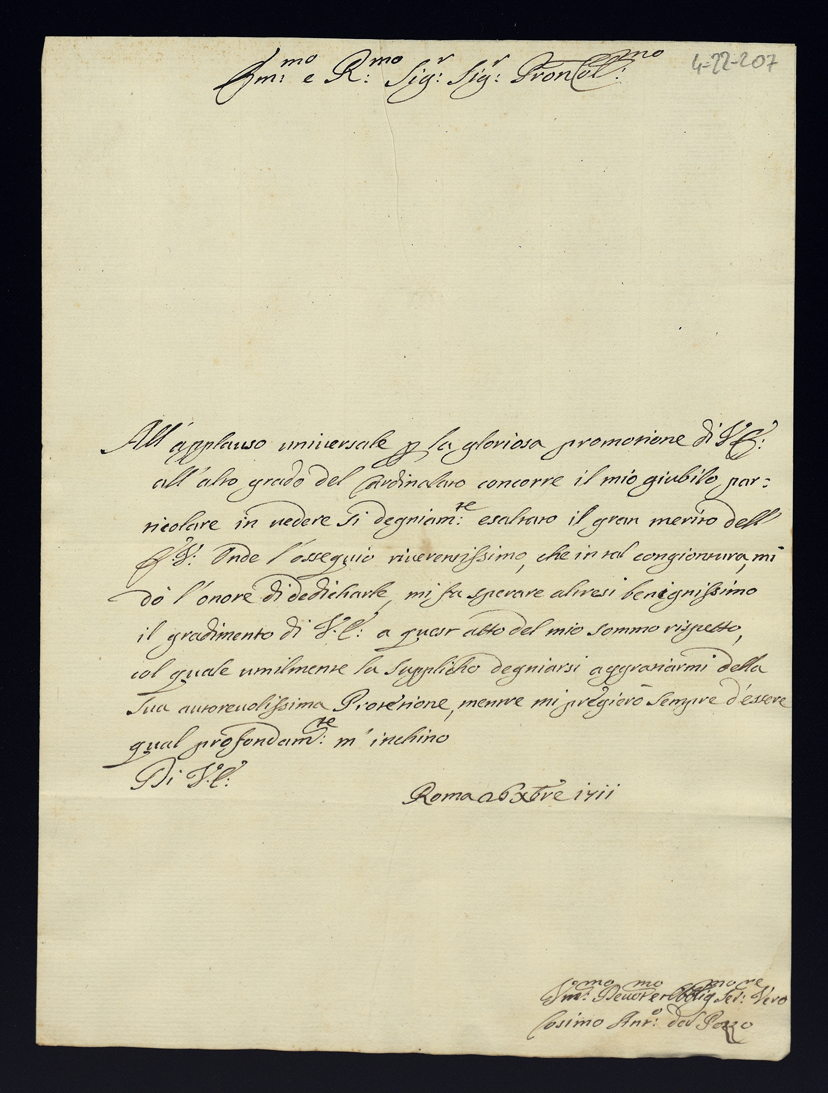 Em:mo e R:mo Sig:r Sig:r Pron Col:mo
4-22-207
All'applauso universale p la gloriosa promotione di V: E:
all'alto grado del Cardinalato concorre il mio giubilo par=
ticolare in vedere si degniam:te esaltato il gran merito dell'
E: V: Onde l'ossequio riverentissimo, che in tal congiontura, mi
dò l'onore di dedicharle, mi fa sperare altresi benignissimo
il gradimento di V: E: a quest'atto del mio sommo rispetto,
col quale umilmente la supplicho degniarsi aggratiarmi della
Sua autorevolissima Protetione, mentre mi pregierò sempre d'essere
qual profondam:te m'inchino
Di V: E:
Roma 26 Xbre 1711
Um:mo Devot:mo et Obblig:mo Ser:re Vero
Cosimo Ant:o dal Pozzo